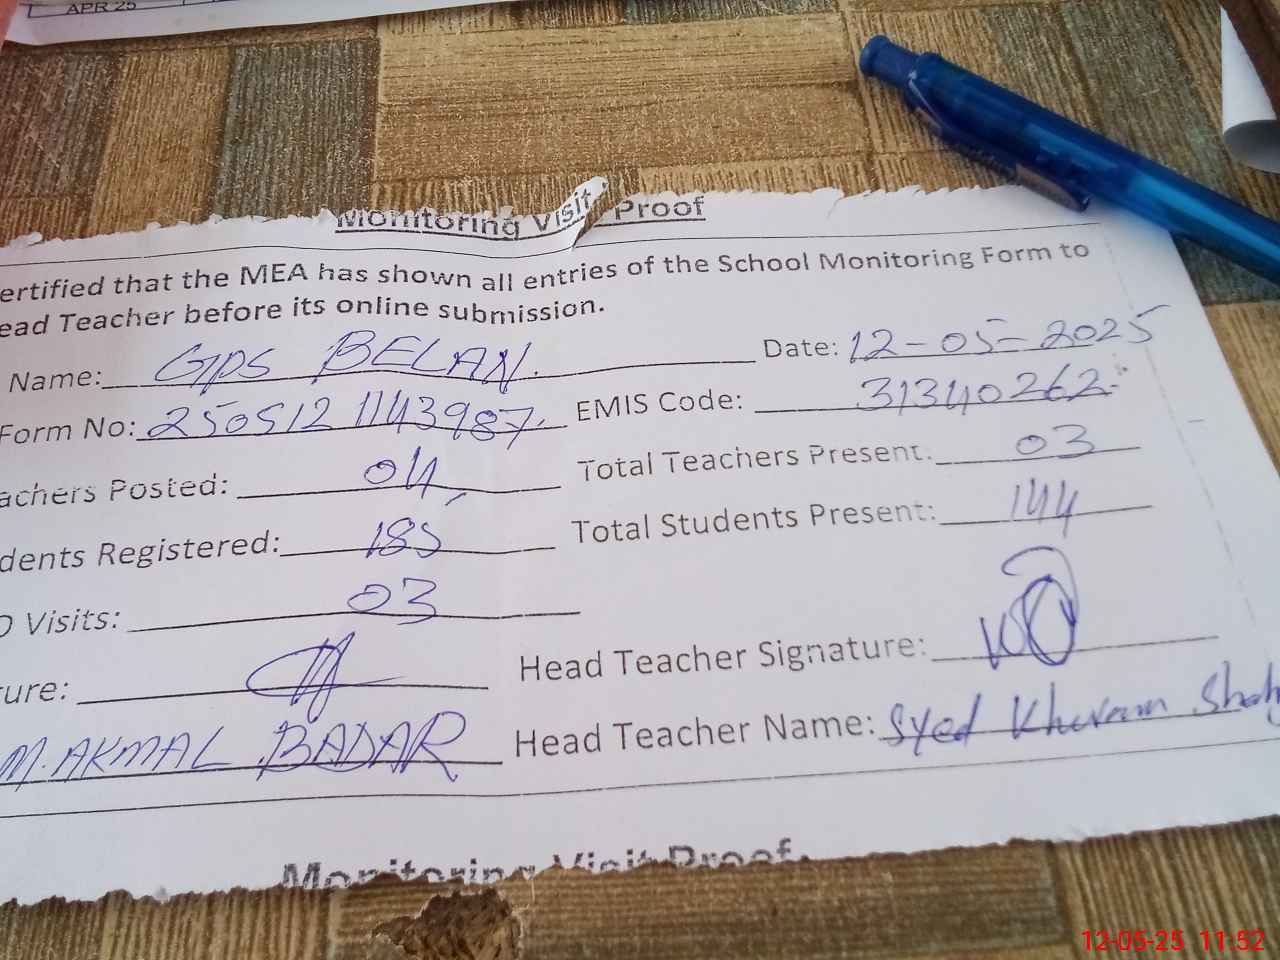 APR 25
Monitoring Visit Proof
ertified that the MEA has shown all entries of the School Monitoring Form to
ead Teacher before its online submission.
Name: GPS BELAN. Date: 12-05-2025
Form No: 250512 1143987. EMIS Code: 31340262
achers Posted: 04 Total Teachers Present: 03
dents Registered: 185 Total Students Present: 144
O Visits: 03
ure: Head Teacher Signature:
M. AKMAL BADAR Head Teacher Name: Syed Khuram Shah
Monitoring Visit Proof
12-05-25 11:52